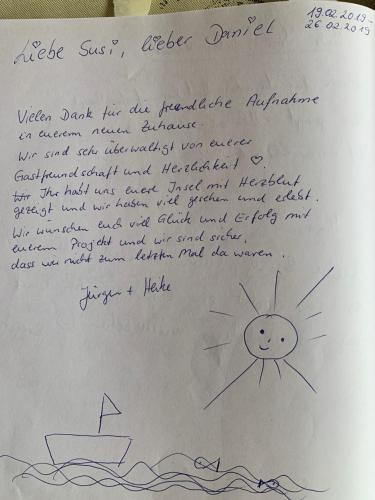 19.02.2019-
26.02.2019
Liebe Susi, lieber Daniel
Vielen Dank für die freundliche Aufnahme
in eurem neuen Zuhause.
Wir sind sehr überwältigt von eurer
Gastfreundschaft und Herzlichkeit ♡.
Ihr habt uns eure Insel mit Herzblut
gezeigt und wir haben viel gesehen und erlebt.
Wir wünschen euch viel Glück und Erfolg mit
eurem Projekt und wir sind sicher,
dass wir nicht zum letzten Mal da waren.
Jürgen + Heike